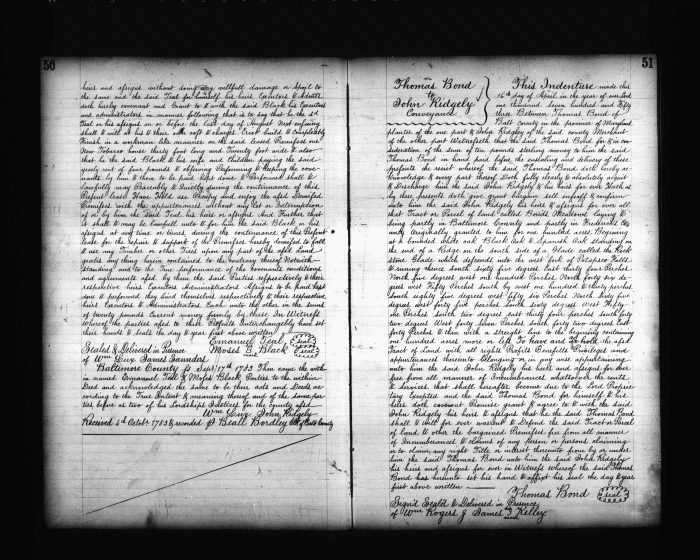 50
heirs and assigns without doing any willfull damage or Spoil to
the same and the said Teal for himself his heirs Executors & Admrs
doth hereby covenant and Grant to & with the said Black his Executors
and administrators in manner following that is to say that he the sd
Teal or his assigns on or before the last day of August Next ensuing
shall & will at his & their own cost & charges Erect build & compleatly
Finish in a workman like manner on the said Demised Premisses one
New Tobacco house thirty foot long and Twenty foot wide & also
that he the said Black & his wife and Children paying the said
yearly rent of four pounds & observing Performing & keeping the cove-
nants by him & them to be paid kept done & Performed shall &
Lawfully may Peaceably & Quietly during the continuance of this
Present lease Have Hold use Occupy and enjoy the afsd Demised
Premisses with the appurtenances without any Let or Interruption
of or by him the said Teal his heirs or assigns And Further that
it shall & may be Lawfull unto & for him the said Black or his
assigns at any time or times during the continuance of this Present
lease for the repair & support of the Premisses hereby demised to fall
& use any Timber or other Trees upon any part of the afsd Land
gratis any thing herein contained to the contrary thereof Notwith-
standing and to the True performance of the covenants conditions
and agreements afsd by them the said Parties respectively & their
respective heirs Executors Administrators Assigns to be paid kept
done & performed they bind themselves respectively & their respective
heirs Executors & Administrators Each unto the other in the sum
of twenty pounds Current money firmly by these In Witness
whereof the parties afsd to these Presents Interchangeably have set
their hands & seals the day & year first above written
Sealed & Delivered in Presence Emanuel Teal seal
of Wm Lux James Saunders Moses B Black seal
Baltimore County ss Sept 17th 1753 Then came the with-
in named Emanuel Teal & Moses Black Parties to the within
Deed and acknowledged the same to be their acts and Deeds ac-
cording to the True Intent & meaning thereof and of the same par-
ties before us two of his Lordships Justices for the county afsd
Wm Lux John Ridgely
Received 5th Octobr 1753 & recorded Beall Bordley Clk of Balto County
51
Thomas Bond
to
John Ridgely
Conveyance
This Indenture made this
16th day of April in the year of our Lord
one thousand seven hundred and Fifty
three Between Thomas Bond of
Balt County in the province of Maryland
planter of the one part & John Ridgely of the said county Merchant
of the other part Witnesseth that the said Thomas Bond for & in con-
sideration of the sum of pounds sterling money to him the said
Thomas Bond in hand paid before the ensealing and delivery of these
presents the receit whereof the said Thomas Bond doth hereby ac-
knowledge & every part thereof Doth fully clearly & absolutely acquit
& Discharge him the said John Ridgely & his heirs for ever Hath &
by these presents doth give grant bargain sell enfeoff & confirm
unto him the said John Ridgely his heirs & assigns for ever all
that Tract or Parcel of land called Bonds Meadows laying &
being partly in Baltimore County and partly in Frederick Co
unty Originally granted to him for one hundred acres Beginning
at a bounded white oak Black oak & Spanish Oak standing on
the end of a Ridge on the South side of a Glade called the Rock
stone Glade which descends into the west fork of Potapsco Falls
& running thence south sixty five degrees East thirty four Perches
North five degrees west one hundred Perches North forty six de-
grees west Fifty Perches South by west one hundred & thirty perches
South eighty five degrees west fifty six Perches North sixty five
degrees west forty five perches South sixty degrees west Fifty
one Perches South two degrees east thirty four perches South forty
two degrees West forty seven Perches South forty two degrees East
forty Perches & then with a straight line to the beginning containing
one hundred acres more or less To have and to hold the afsd
Tract of Land with all rights Profits Benefits Privileges and
appurtenances thereunto belonging or in any wise appurtaining
unto him the said John Ridgely his heirs and assigns for ever
free from all manner of Incumbrances whatsoever the rents
& services that shall hereafter become due to the Lord Proprie-
tary Excepted and the said Thomas Bond for himself & his
heirs doth covenant Promise grant & agree to & with the said
John Ridgely his heirs & assigns that he the said Thomas Bond
shall & will for ever warrant & Defend the said Tract or Parcel
of land & other the bargained Premisses free from all manner
of Incumbrances & claims of any Person or persons claiming
or to claim any right Title or interest thereunto from by or under
him the said Thomas Bond unto him the said John Ridgely
his heirs and assigns for ever in Witness whereof the said Thomas
Bond has hereunto set his hand & affixt his seal the day & year
first above written
Thomas Bond seal
Sign'd Seal'd & Delivered in Presence
of Wm Rogers J James Kelley